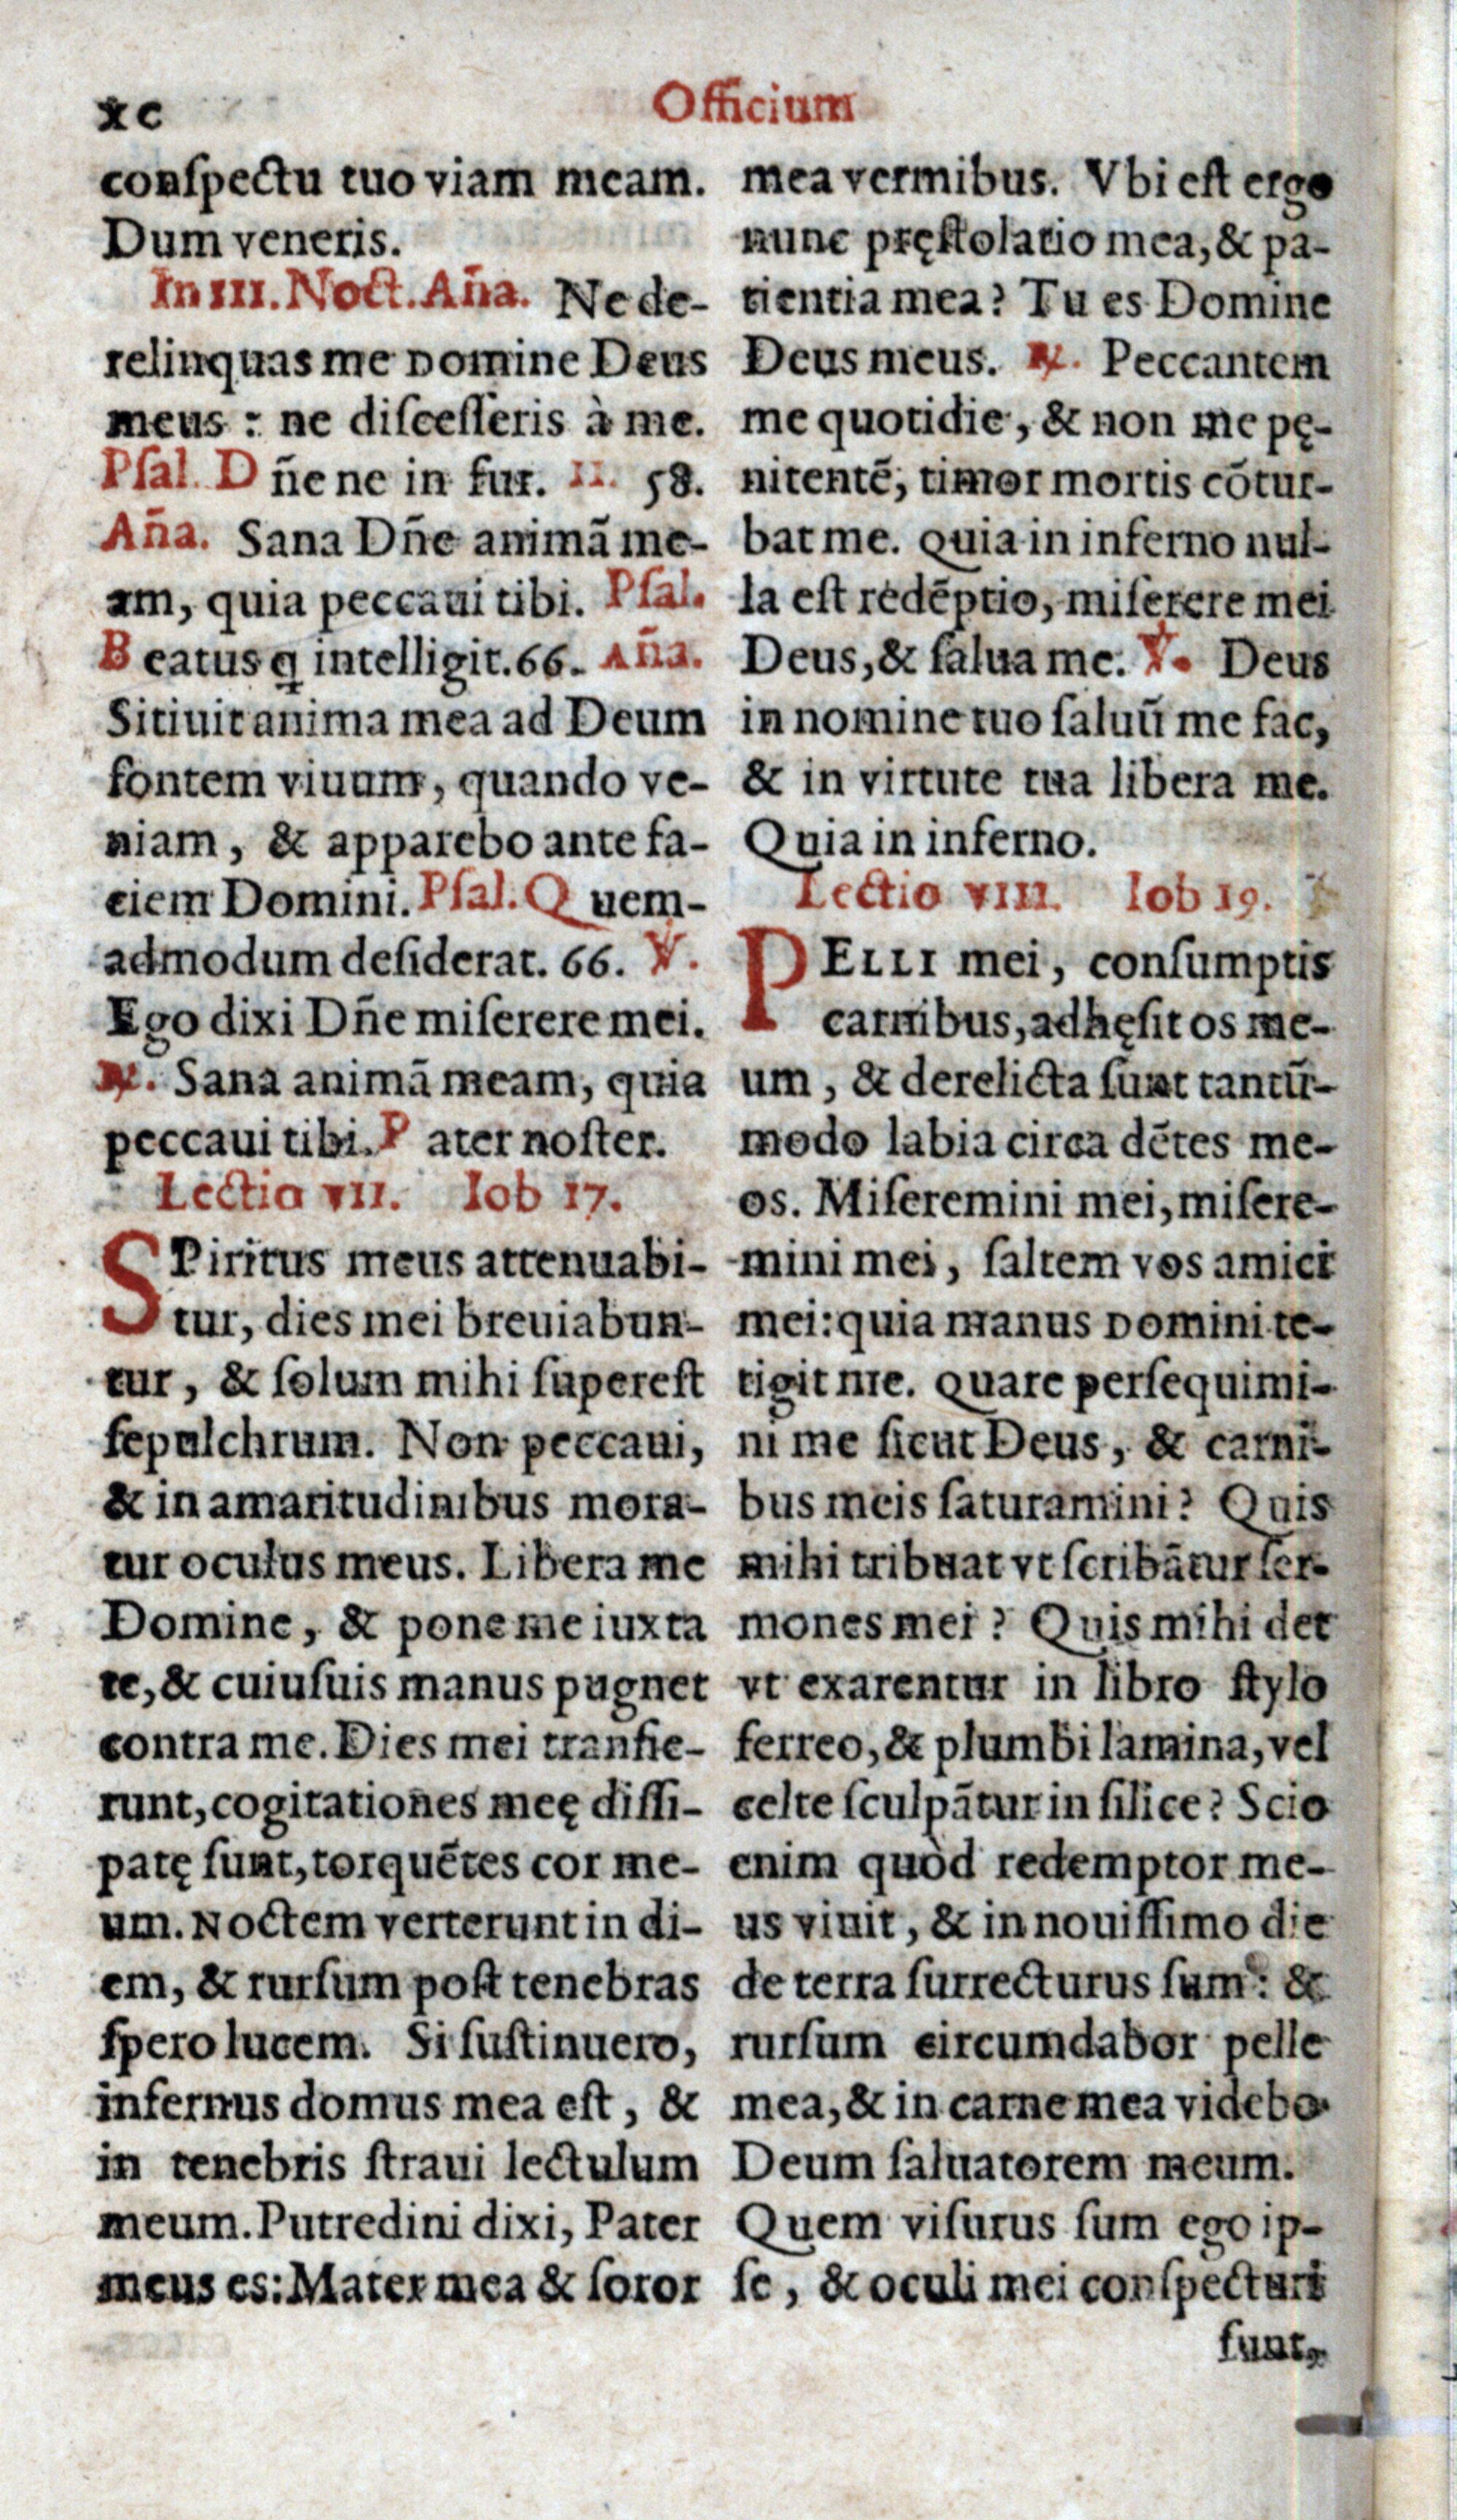 xc
Officium
conſpectu tuo viam meam.
Dum veneris.
In III. Noct. Aña. Ne de-
relinquas me Domine Deus
meus : ne diſceſſeris à me.
Pſal. Dñe ne in fur. II. 58.
Aña. Sana Dñe animā me-
am, quia peccaui tibi. Pſal.
Beatus q intelligit. 66. Aña.
Sitiuit anima mea ad Deum
fontem viuum, quando ve-
niam, & apparebo ante fa-
ciem Domini. Pſal. Quem-
admodum deſiderat. 66. ℣.
Ego dixi Dñe miſerere mei.
℟. Sana animā meam, quia
peccaui tibi. Pater noſter.
Lectio VII. Iob 17.
SPiritus meus attenuabi-
tur, dies mei breuiabun-
tur, & ſolum mihi ſupereſt
ſepulchrum. Non peccaui,
& in amaritudinibus mora-
tur oculus meus. Libera me
Domine, & pone me iuxta
te, & cuiuſuis manus pugnet
contra me. Dies mei tranſie-
runt, cogitationes meę diſſi-
patę ſunt, torquētes cor me-
um. Noctem verterunt in di-
em, & rurſum poſt tenebras
ſpero lucem. Si ſuſtinuero,
infernus domus mea eſt, &
in tenebris ſtraui lectulum
meum. Putredini dixi, Pater
meus es: Mater mea & ſoror
mea vermibus. Vbi eſt ergo
nunc pręſtolatio mea, & pa-
tientia mea? Tu es Domine
Deus meus. ℟. Peccantem
me quotidie, & non me pę-
nitentē, timor mortis cōtur-
bat me. Quia in inferno nul-
la eſt redēptio, miſerere mei
Deus, & ſalua me. ℣. Deus
in nomine tuo ſaluū me fac,
& in virtute tua libera me.
Quia in inferno.
Lectio VIII. Iob 19.
PELLI mei, conſumptis
carnibus, adhęſit os me-
um, & derelicta ſunt tantū-
modo labia circa dētes me-
os. Miſeremini mei, miſere-
mini mei, ſaltem vos amici
mei: quia manus Domini te-
tigit me. Quare perſequimi-
ni me ſicut Deus, & carni-
bus meis ſaturamini? Quis
mihi tribuat vt ſcribātur ſer-
mones mei? Quis mihi det
vt exarentur in libro ſtylo
ferreo, & plumbi lamina, vel
celte ſculpātur in ſilice? Scio
enim quòd redemptor me-
us viuit, & in nouiſſimo die
de terra ſurrecturus ſum: &
rurſum circumdabor pelle
mea, & in carne mea videbo
Deum ſaluatorem meum.
Quem viſurus ſum ego ip-
ſe, & oculi mei conſpecturi
ſunt,